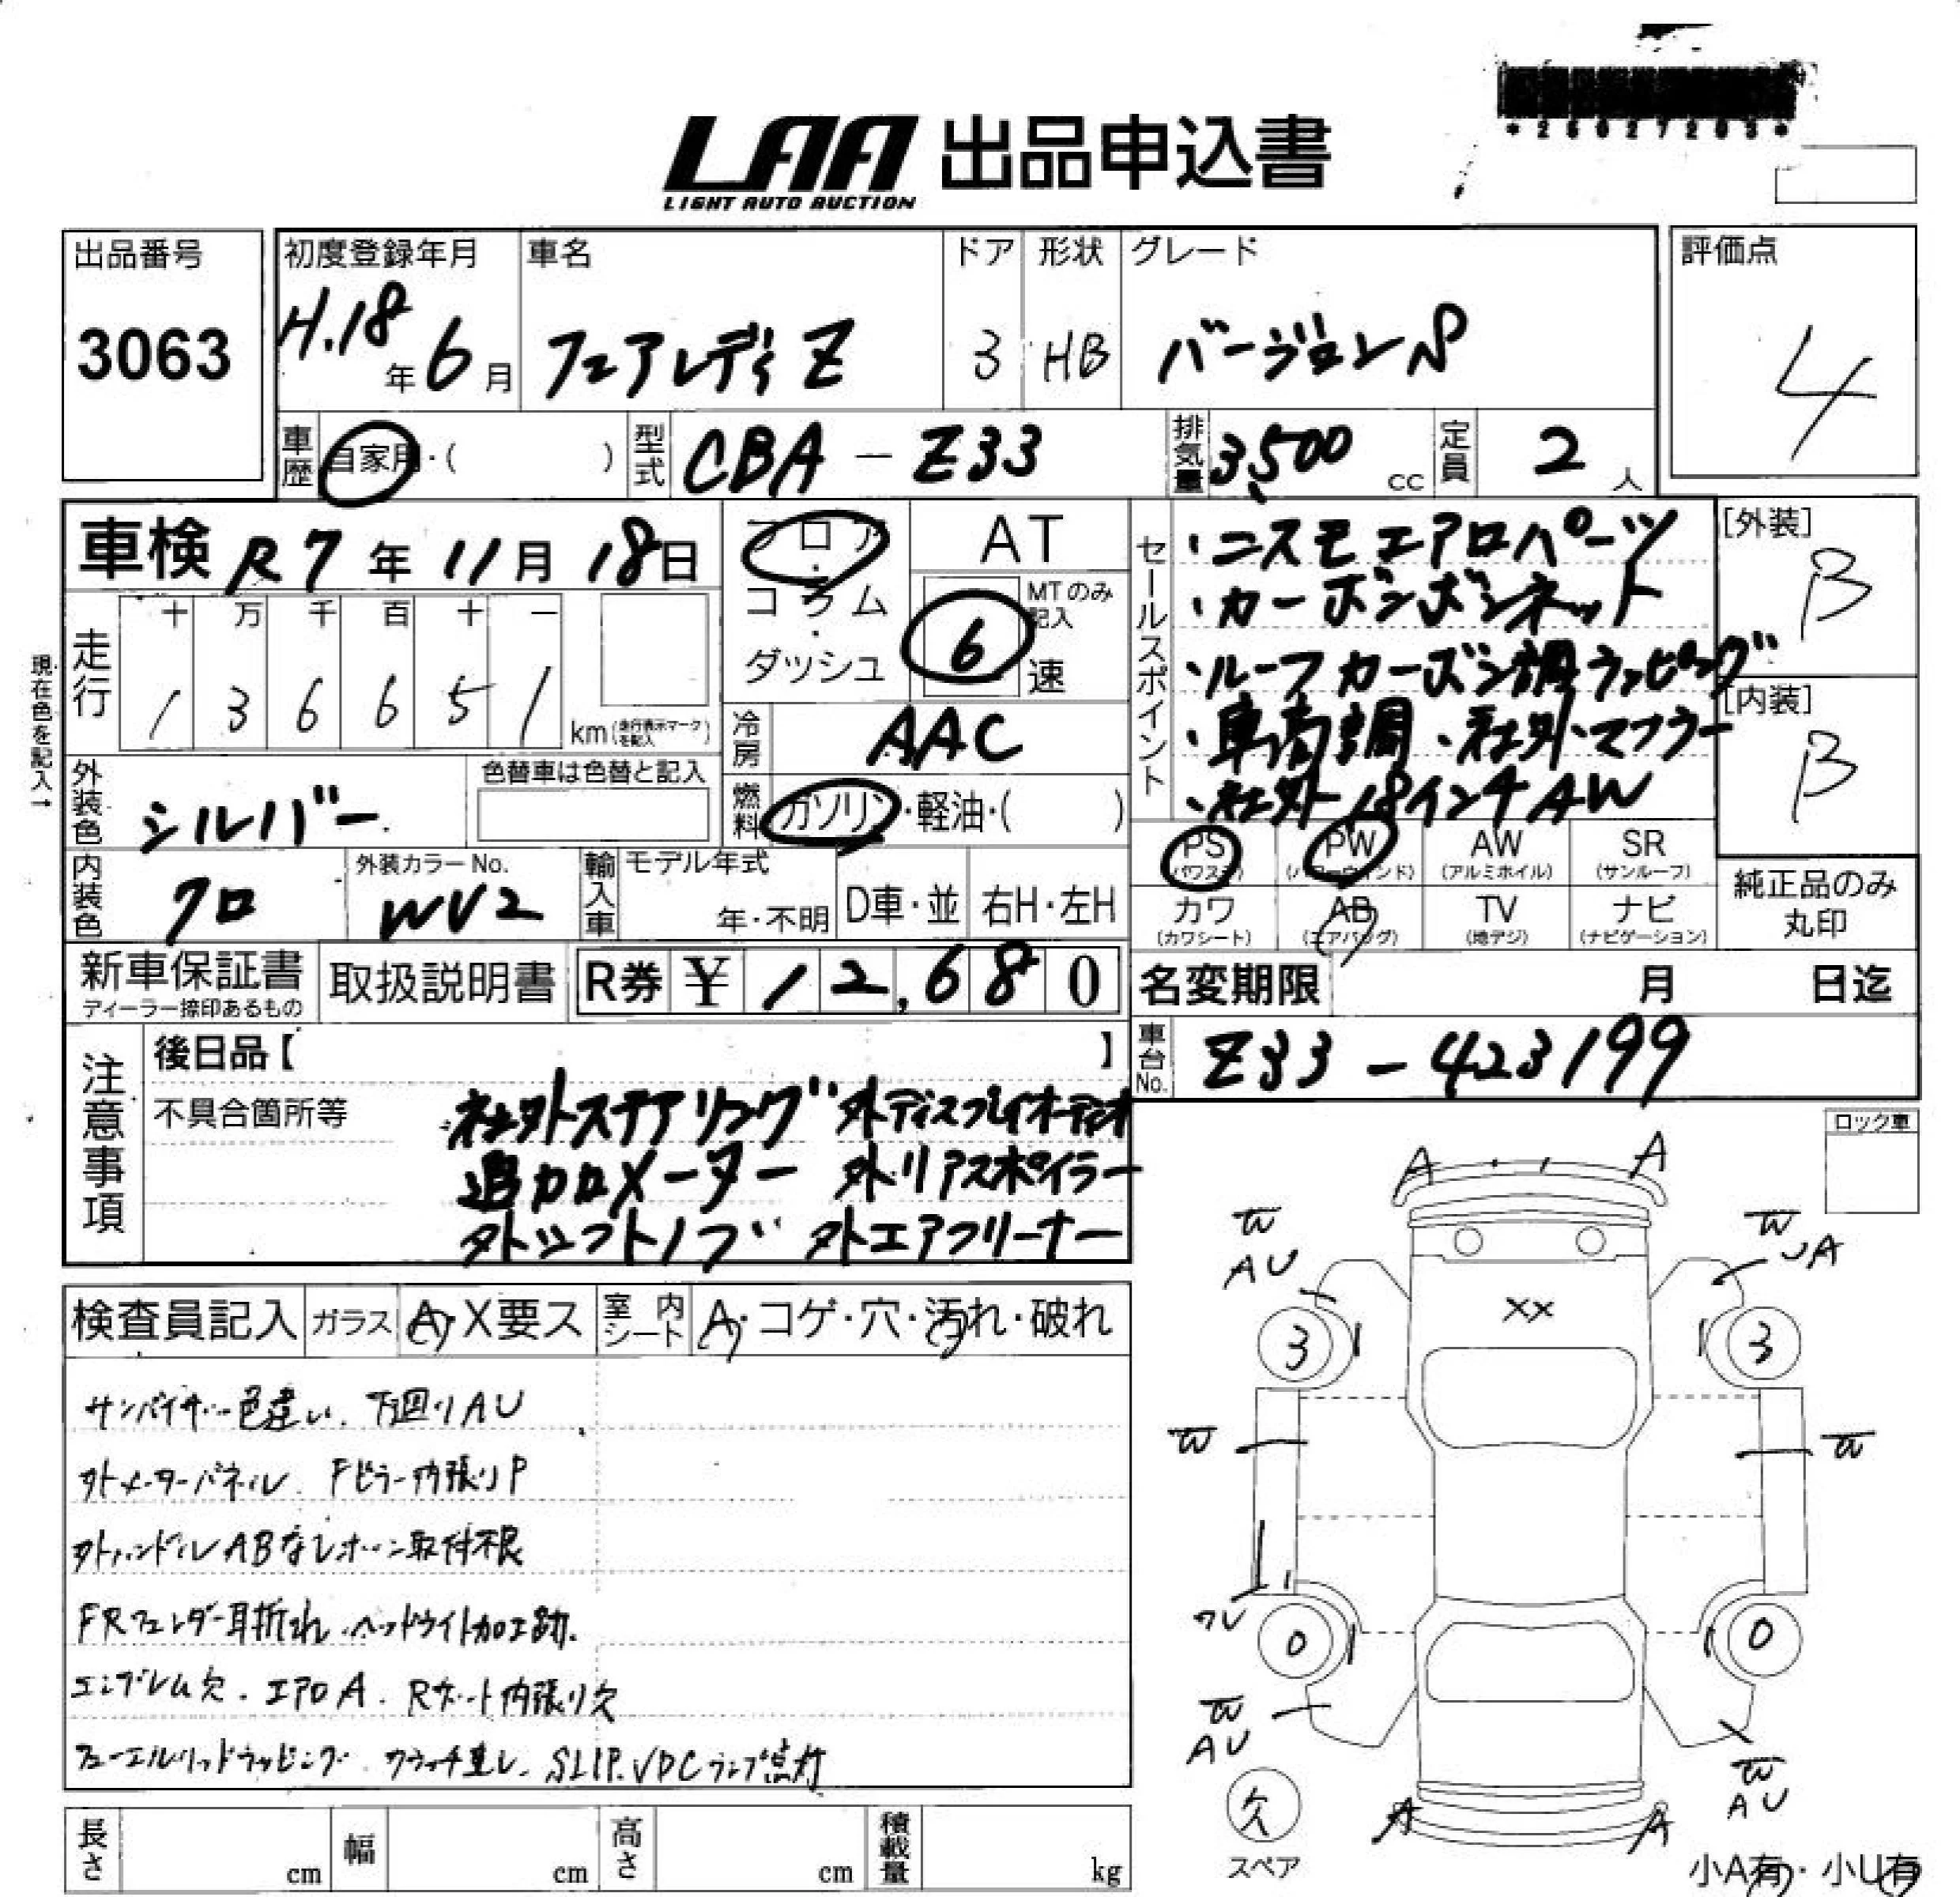 *26027203*
LAA 出品申込書
LIGHT AUTO AUCTION
出品番号
3063
初度登録年月
H.18年6月
車名
フェアレディZ
ドア
3
形状
HB
グレード
バージョンS
評価点
4
車歴 自家用・( )
型式 CBA-Z33
排気量 3,500 cc
定員 2 人
車検 R7年11月18日
フロア・コラム・ダッシュ
AT
MTのみ記入
6速
走行
十 万 千 百 十 一
1 3 6 6 5 1
km(走行表示マークを記入)
現在色を記入→
冷房 AAC
外装色 シルバー
色替車は色替と記入
燃料 ガソリン・軽油・( )
セールスポイント
・ニスモエアロパーツ
・カーボンボンネット
・ルーフカーボン調ラッピング
・車高調・社外マフラー
・社外18インチAW
[外装]
B
[内装]
B
内装色 クロ
外装カラーNo.
WV2
輸入車
モデル年式
年・不明
D車・並
右H・左H
PS (パワステ)
PW (パワーウィンド)
AW (アルミホイル)
SR (サンルーフ)
カワ (カワシート)
AB (エアバッグ)
TV (地デジ)
ナビ (ナビゲーション)
純正品のみ
丸印
新車保証書
ディーラー捺印あるもの
取扱説明書
R券 ¥12,680
名変期限 月 日迄
車台No. Z33-423199
注意事項
後日品【 】
不具合箇所等
社外ステアリング 外ディスプレイオーディオ
追加メーター 外リアスポイラー
外シフトノブ 外エアクリーナー
ロック車
検査員記入
ガラス A・X要ス
室内シート A・コゲ・穴・汚れ・破れ
サンバイザー色違い、下回りAU
外メーターパネル Fピラー内張りP
外ハンドルABなしホーン取付不良
FRフェンダー耳折れ、ヘッドライト加工跡.
エンブレム欠、エアロA、Rゲート内張り欠
フューエルリッドラッピング クラッチ重し、SLIP、VDCランプ点灯
A A
W W
AU UA
XX
3 3
W W
0 0
W W
AU AU
A A
欠
スペア
小A有・小U有
長さ cm
幅 cm
高さ cm
積載量 kg